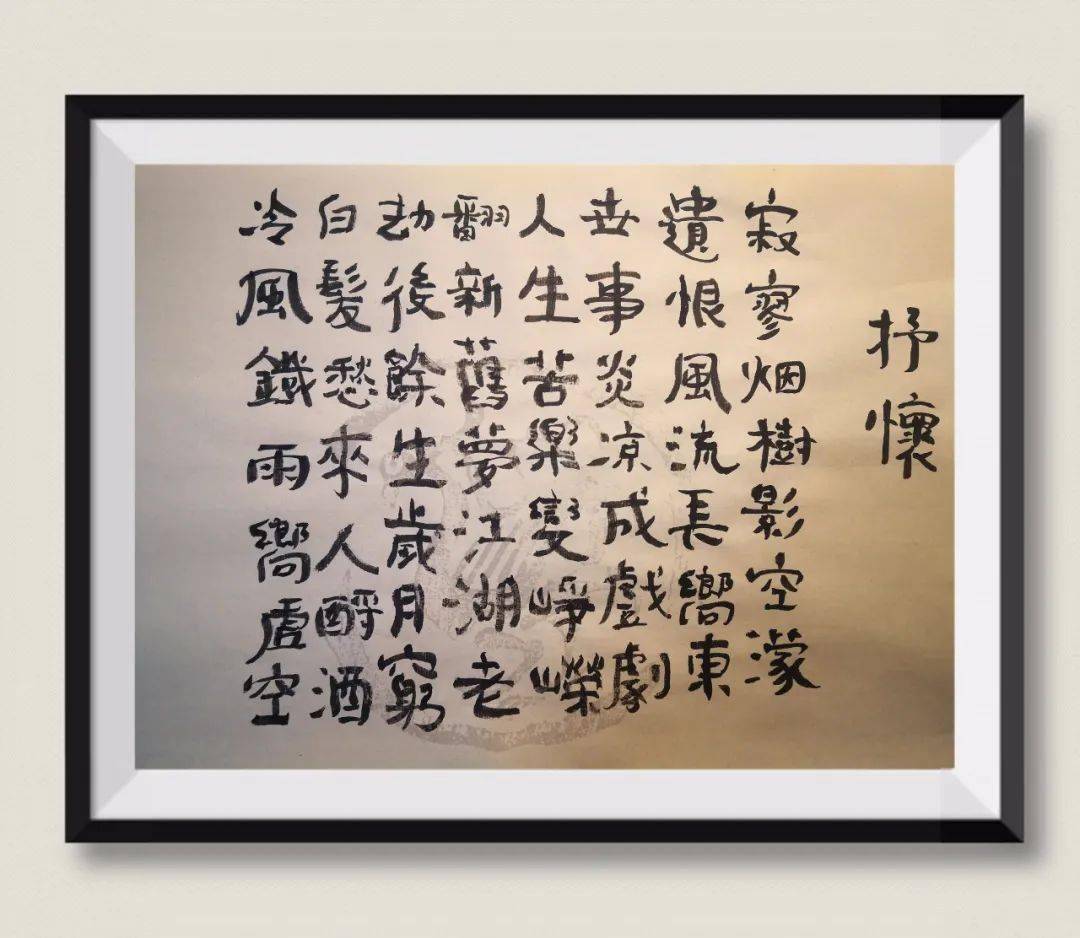 抒懷
寂寥烟樹影空濛
遺恨風流長嚮東
世事炎凉成戲劇
人生苦樂變崢嶸
翻新舊夢江湖老
劫後餘生歲月窮
白髮愁來人酹酒
冷風鐵雨嚮虛空